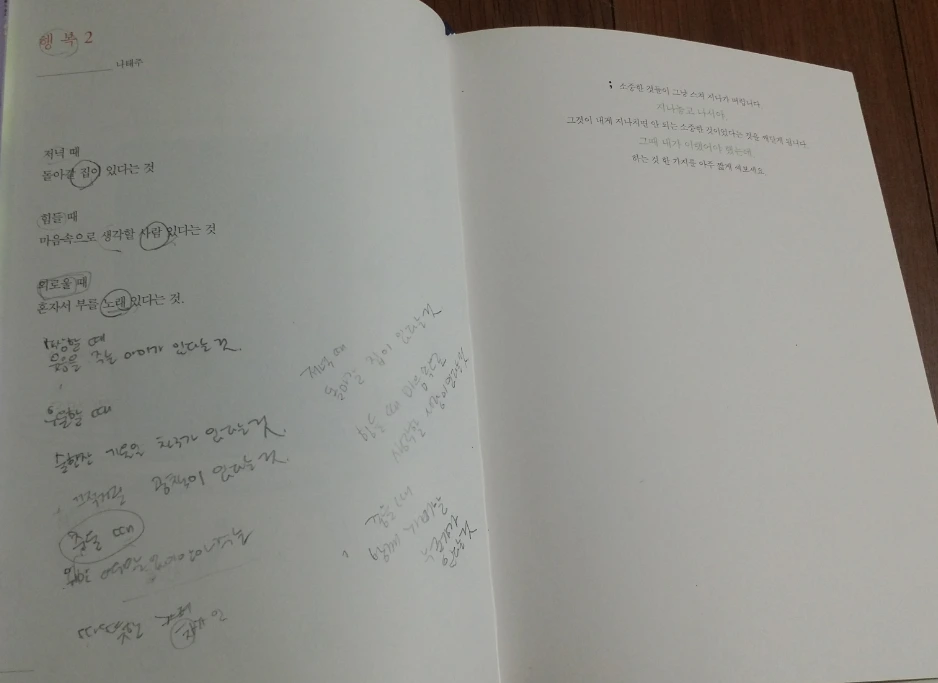 행 복 2
나태주
저녁 때
돌아갈 집이 있다는 것
힘들 때
마음속으로 생각할 사람 있다는 것
외로울 때
혼자서 부를 노래 있다는 것.
속상할 때
웃음을 주는 아이가 있다는 것.
우울할 때
술한잔 기울일 친구가 있다는 것.
끄적거릴 공책이 있다는 것.
죽을 때
따뜻한
저녁 때
돌아갈 집이 있다는 것
힘들 때 마음속으로
생각할 사람이 있다는 것
죽을 때
함께
있다는 것
; 소중한 것들이 그냥 스쳐 지나가 버립니다.
지나놓고 나서야
그것이 내게 지나치면 안 되는 소중한 것이었다는 것을 깨닫게 됩니다.
그때 내가 이랬어야 했는데
하는 것 한 가지를 아주 짧게 써보세요.